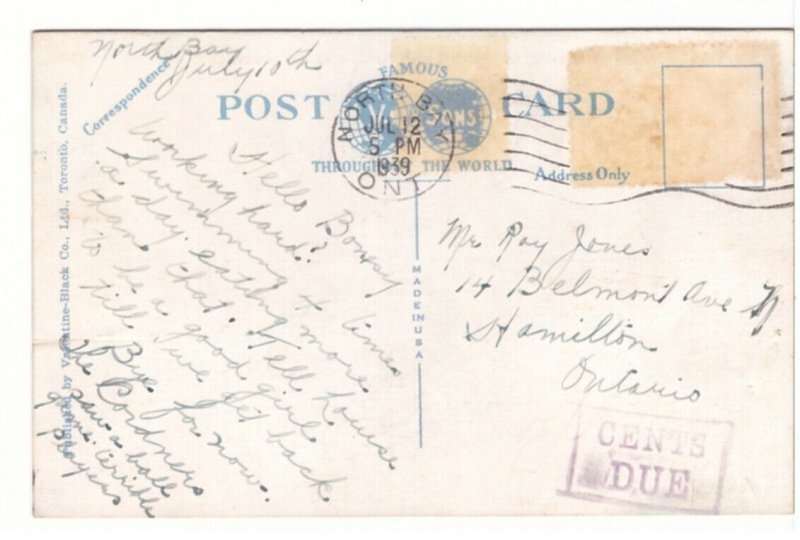 North Bay
July 10th
Correspondence
POST CARD
FAMOUS
SONS
THROUGHOUT THE WORLD
NORTH BAY
JUL 12
5 PM
1939
ONT
Address Only
Hello Boney
Working hard?
Swimming 4 times
a day. eating more
than that. Tell Louise
to be a good girl
till we get back
Bye for now.
The Cordners
saw a ball
game. terrible
players
MADE IN USA
Mr Roy Jones
14 Belmont Ave N
Hamilton
Ontario
CENTS
DUE
Published by Valentine-Black Co., Ltd., Toronto, Canada.